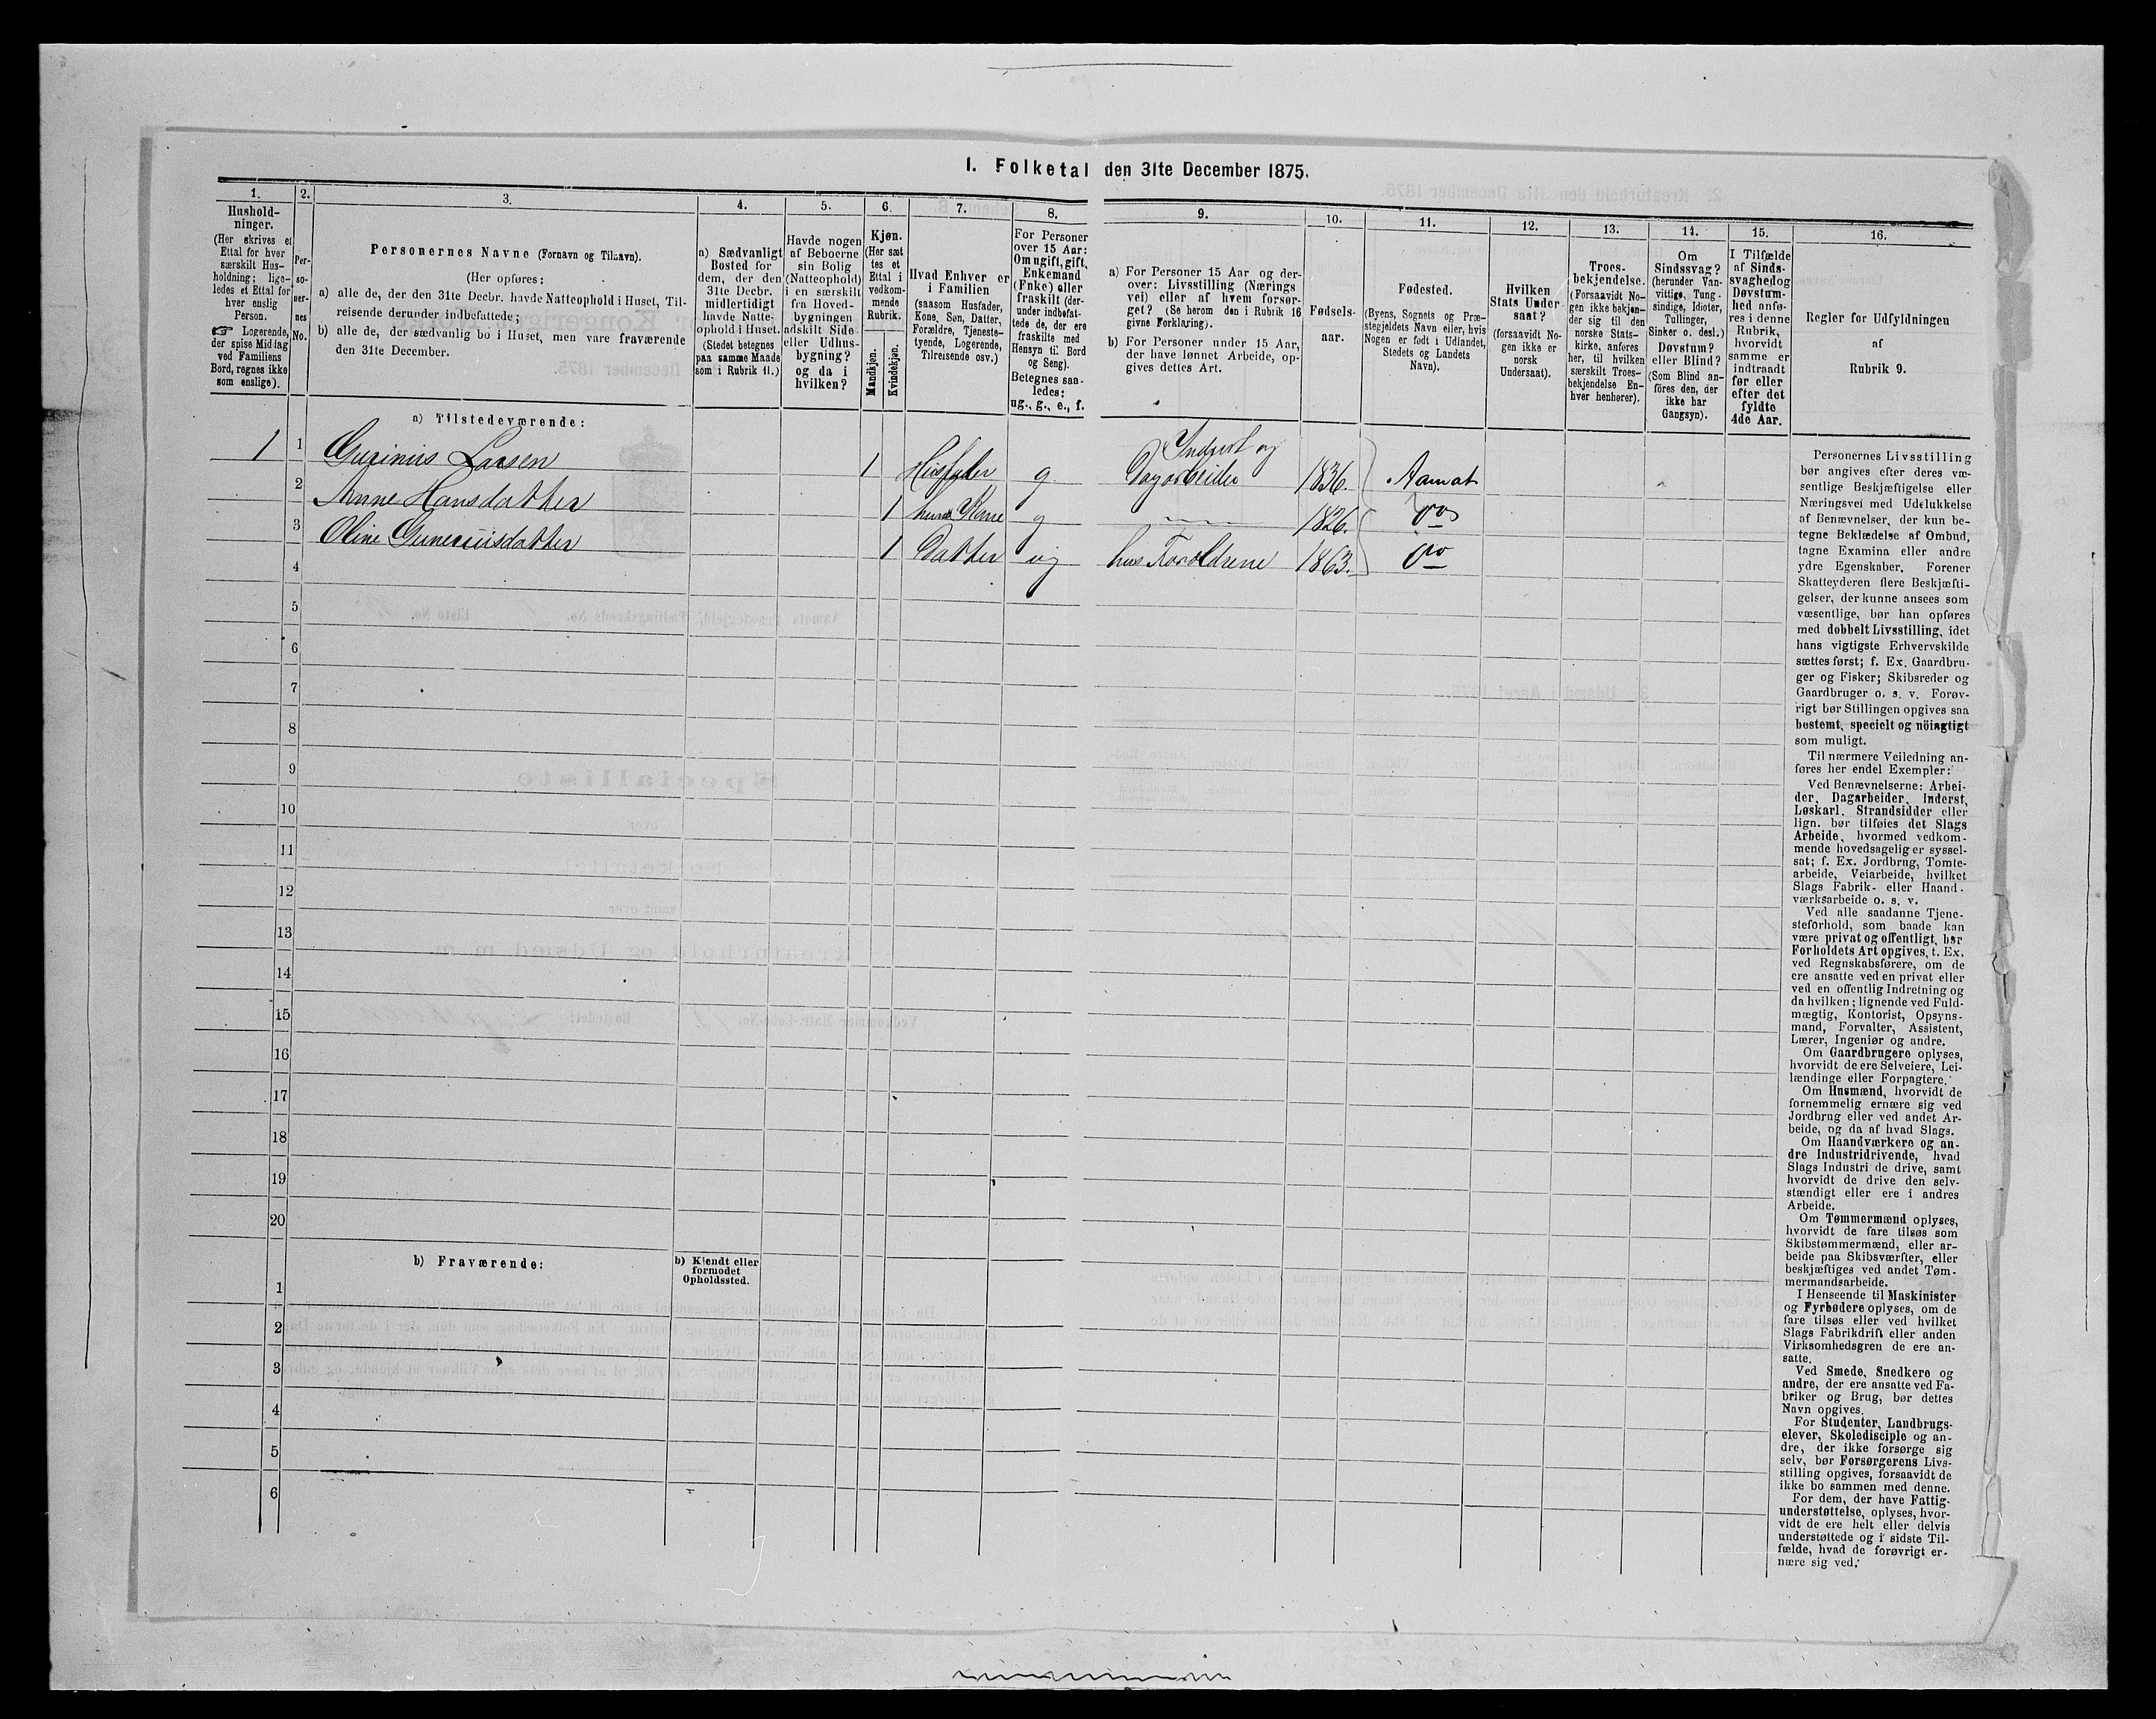 I. Folketal den 31te December 1875.
1.
Hushold-
ninger.
(Her skrives et
Ettal for hver
særskilt Hus-
holdning; lige-
ledes et Ettal for
hver enslig
Person.
☞ Logerende,
der spise Middag
ved Familiens
Bord, regnes ikke
som enslige).
2.
Per-
so-
ner-
nes
No.
3.
Personernes Navne (Fornavn og Tilnavn).
(Her opføres:
a) alle de, der den 31te Decbr. havde Natteophold i Huset, Til-
reisende derunder indbefattede;
b) alle de, der sædvanlig bo i Huset, men vare fraværende
den 31te December.
4.
a) Sædvanligt
Bosted for
dem, der den
31te Decbr.
midlertidigt
havde Natte-
ophold i Huset.
(Stedet betegnes
paa samme Maade
som i Rubrik 11.)
5.
Havde nogen
af Beboerne
sin Bolig
(Natteophold)
i en særskilt
fra Hoved-
bygningen
adskilt Side
eller Udhus-
bygning?
og da i
hvilken?
6.
Kjøn.
(Her sæt
tes et
Ettal i
vedkom-
mende
Rubrik.
Mandkjøn.
Kvindekjøn.
7.
Hvad Enhver er
i Familien
(saasom Husfader,
Kone, Søn, Datter,
Forældre, Tjeneste-
tyende, Logerende,
Tilreisende osv.)
8.
For Personer
over 15 Aar:
Om ugift, gift,
Enkemand
(Enke) eller
fraskilt (der-
under indbefat-
tede de, der ere
fraskilte med
Hensyn til Bord
og Seng).
Betegnes saa-
ledes:
ug., g., e., f.
9.
a) For Personer 15 Aar og der-
over: Livsstilling (Nærings
vei) eller af hvem forsør-
get? (Se herom den i Rubrik 16
givne Forklaring).
b) For Personer under 15 Aar,
der have lønnet Arbeide, op-
gives dettes Art.
10.
Fødsels-
aar.
11.
Fødested.
(Byens, Sognets og Præ-
stegjeldets Navn eller, hvis
Nogen er født i Udlandet,
Stedets og Landets
Navn).
12.
Hvilken
Stats Under-
saat?
(forsaavidt No-
gen ikke er
norsk
Undersaat).
13.
Troes-
bekjendelse.
(Forsaavidt No-
gen ikke bekjen-
der sig til den
norske Stats-
kirke, anføres
her, til hvilken
særskilt Troes-
bekjendelse En-
hver henhører).
14.
Om
Sindssvag?
(herunder Van-
vittige, Tung-
sindige, Idioter,
Tullinger,
Sinker o. desl.)
Døvstum?
eller Blind?
(Som Blind an-
føres den, der
ikke har
Gangsyn).
15.
I Tilfælde
af Sinds-
svaghed og
Døvstum-
hed anfø-
res i denne
Rubrik,
hvorvidt
samme er
indtraadt
før eller
efter det
fyldte
4de Aar.
16.
Regler for Udfyldningen
af
Rubrik 9.
a) Tilstedeværende:
1 1 Gunerius Larsen 1 Husfader g Inderst og
Dagarbeider 1836. Aamot
2 Anne Hansdatter 1 hans Kone g 1826. Do
3 Oline Guneriusdatter 1 Datter ug hos Forældrene 1863. Do
4
5
6
7
8
9
10
11
12
13
14
15
16
17
18
19
20
b) Fraværende:
b) Kjendt eller
formodet
Opholdssted.
1
2
3
4
5
6
Personernes Livsstilling
bør angives efter deres væ-
sentlige Beskjæftigelse eller
Næringsvei med Udelukkelse
af Benævnelser, der kun be-
tegne Beklædelse af Ombud,
tagne Examina eller andre
ydre Egenskaber. Forener
Skatteyderen flere Beskjæfti-
gelser, der kunne ansees som
væsentlige, bør han opføres
med dobbelt Livsstilling, idet
hans vigtigste Erhvervskilde
sættes først; f. Ex. Gaardbru-
ger og Fisker; Skibsreder og
Gaardbruger o. s. v. Forøv-
rigt bør Stillingen opgives saa
bestemt, specielt og nöiagtigt
som muligt.
Til nærmere Veiledning an-
føres her endel Exempler:
Ved Benævnelserne: Arbei-
der, Dagarbeider, Inderst,
Løskarl, Strandsidder eller
lign. bør tilføies det Slags
Arbeide, hvormed vedkom-
mende hovedsagelig er syssel-
sat; f. Ex. Jordbrug, Tomte-
arbeide, Veiarbeide, hvilket
Slags Fabrik- eller Haand-
værksarbeide o. s. v.
Ved alle saadanne Tjene-
steforhold, som baade kan
være privat og offentligt, bør
Forholdets Art opgives, t. Ex.
ved Regnskabsførere, om de
ere ansatte ved en privat eller
ved en offentlig Indretning og
da hvilken; lignende ved Fuld-
mægtig, Kontorist, Opsyns-
mand, Forvalter, Assistent,
Lærer, Ingeniør og andre.
Om Gaardbrugere oplyses,
hvorvidt de ere Selveiere, Lei-
lændinge eller Forpagtere.
Om Husmænd, hvorvidt de
fornemmelig ernære sig ved
Jordbrug eller ved andet Ar-
beide, og da af hvad Slags.
Om Haandværkere og an-
dre Industridrivende, hvad
Slags Industri de drive, samt
hvorvidt de drive den selv-
stændigt eller ere i andres
Arbeide.
Om Tømmermænd oplyses,
hvorvidt de fare tilsøs som
Skibstømmermænd, eller ar-
beide paa Skibsværfter, eller
beskjæftiges ved andet Tøm-
mermandsarbeide.
I Henseende til Maskinister
og Fyrbødere oplyses, om de
fare tilsøs eller ved hvilket
Slags Fabrikdrift eller anden
Virksomhedsgren de ere an-
satte.
Ved Smede, Snedkere og
andre, der ere ansatte ved Fa-
briker og Brug, bør dettes
Navn opgives.
For Studenter, Landbrugs-
elever, Skoledisciple og an-
dre, der ikke forsørge sig
selv, bør Forsørgerens Livs-
stilling opgives, forsaavidt de
ikke bo sammen med denne.
For dem, der have Fattig-
understøttelse, oplyses, hvor-
vidt de ere helt eller delvis
understøttede og i sidste Til-
fælde, hvad de forøvrigt er-
nære sig ved.